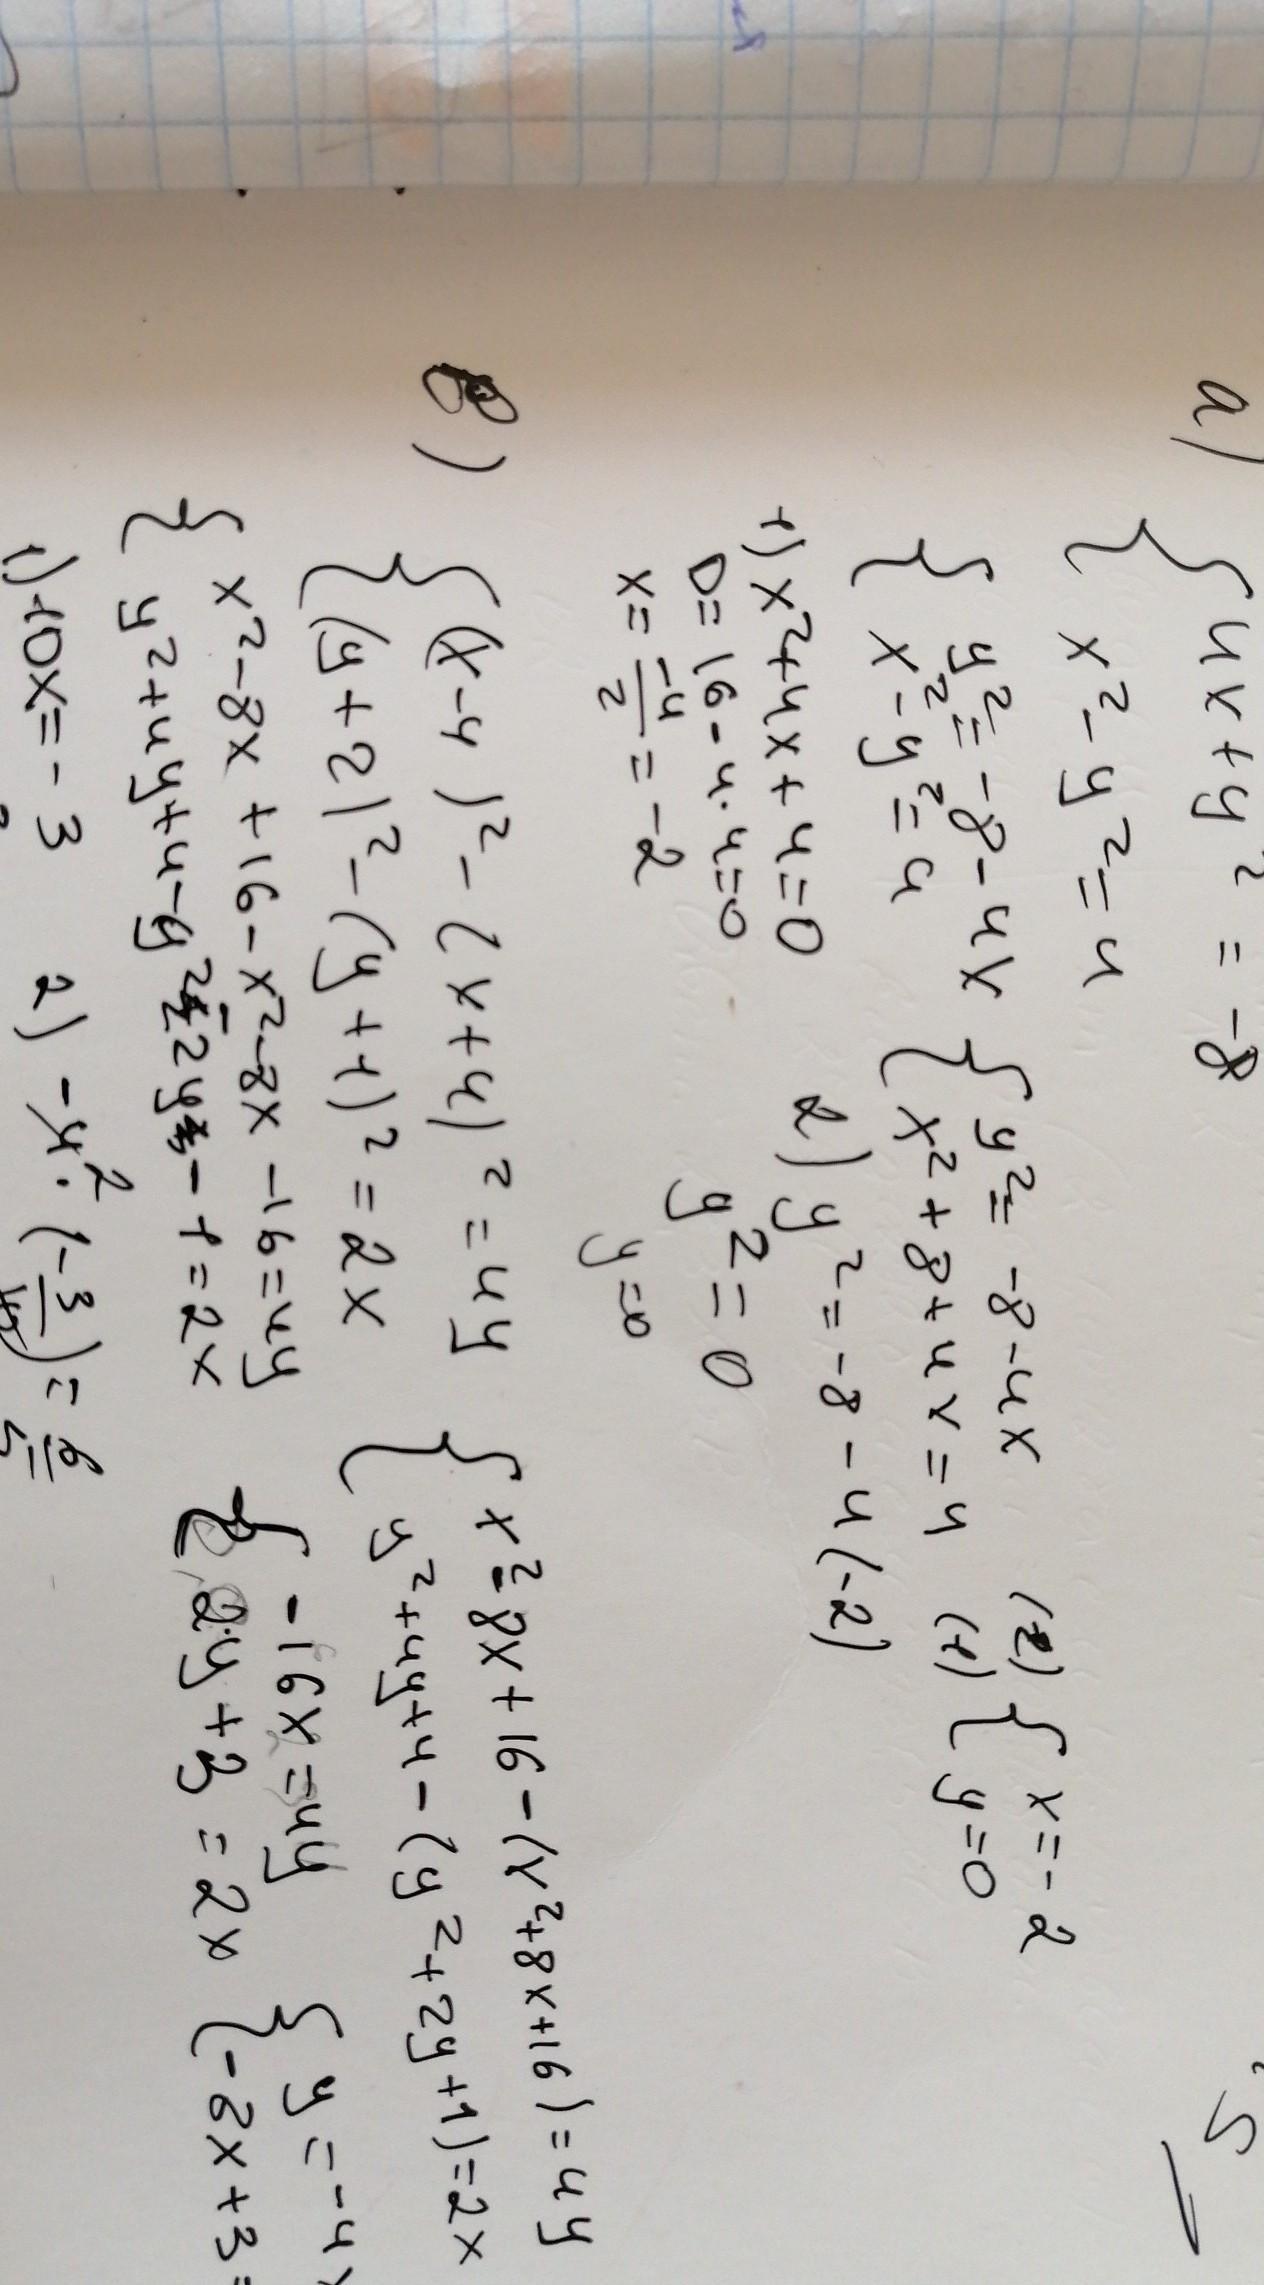 a) { 4x + y² = -8
x² - y² = 4
{ y² = -8 - 4x
x² - y² = 4
{ y² = -8 - 4x (2)
x² + 8 + 4x = 4 (1)
{ x = -2
y = 0
1) x² + 4x + 4 = 0
D = 16 - 4·4 = 0
x = -4/2 = -2
2) y² = -8 - 4(-2)
y² = 0
y = 0
б) { (x-4)² - (x+4)² = 4y
(y+2)² - (y+1)² = 2x
{ x² - 8x + 16 - (x² + 8x + 16) = 4y
y² + 4y + 4 - (y² + 2y + 1) = 2x
{ x² - 8x + 16 - x² - 8x - 16 = 4y
y² + 4y + 4 - y² - 2y - 1 = 2x
{ -16x = 4y
2y + 3 = 2x
{ y = -4x
-8x + 3 =
1) -10x = -3
2) -4 · (-3/10) = 6/5